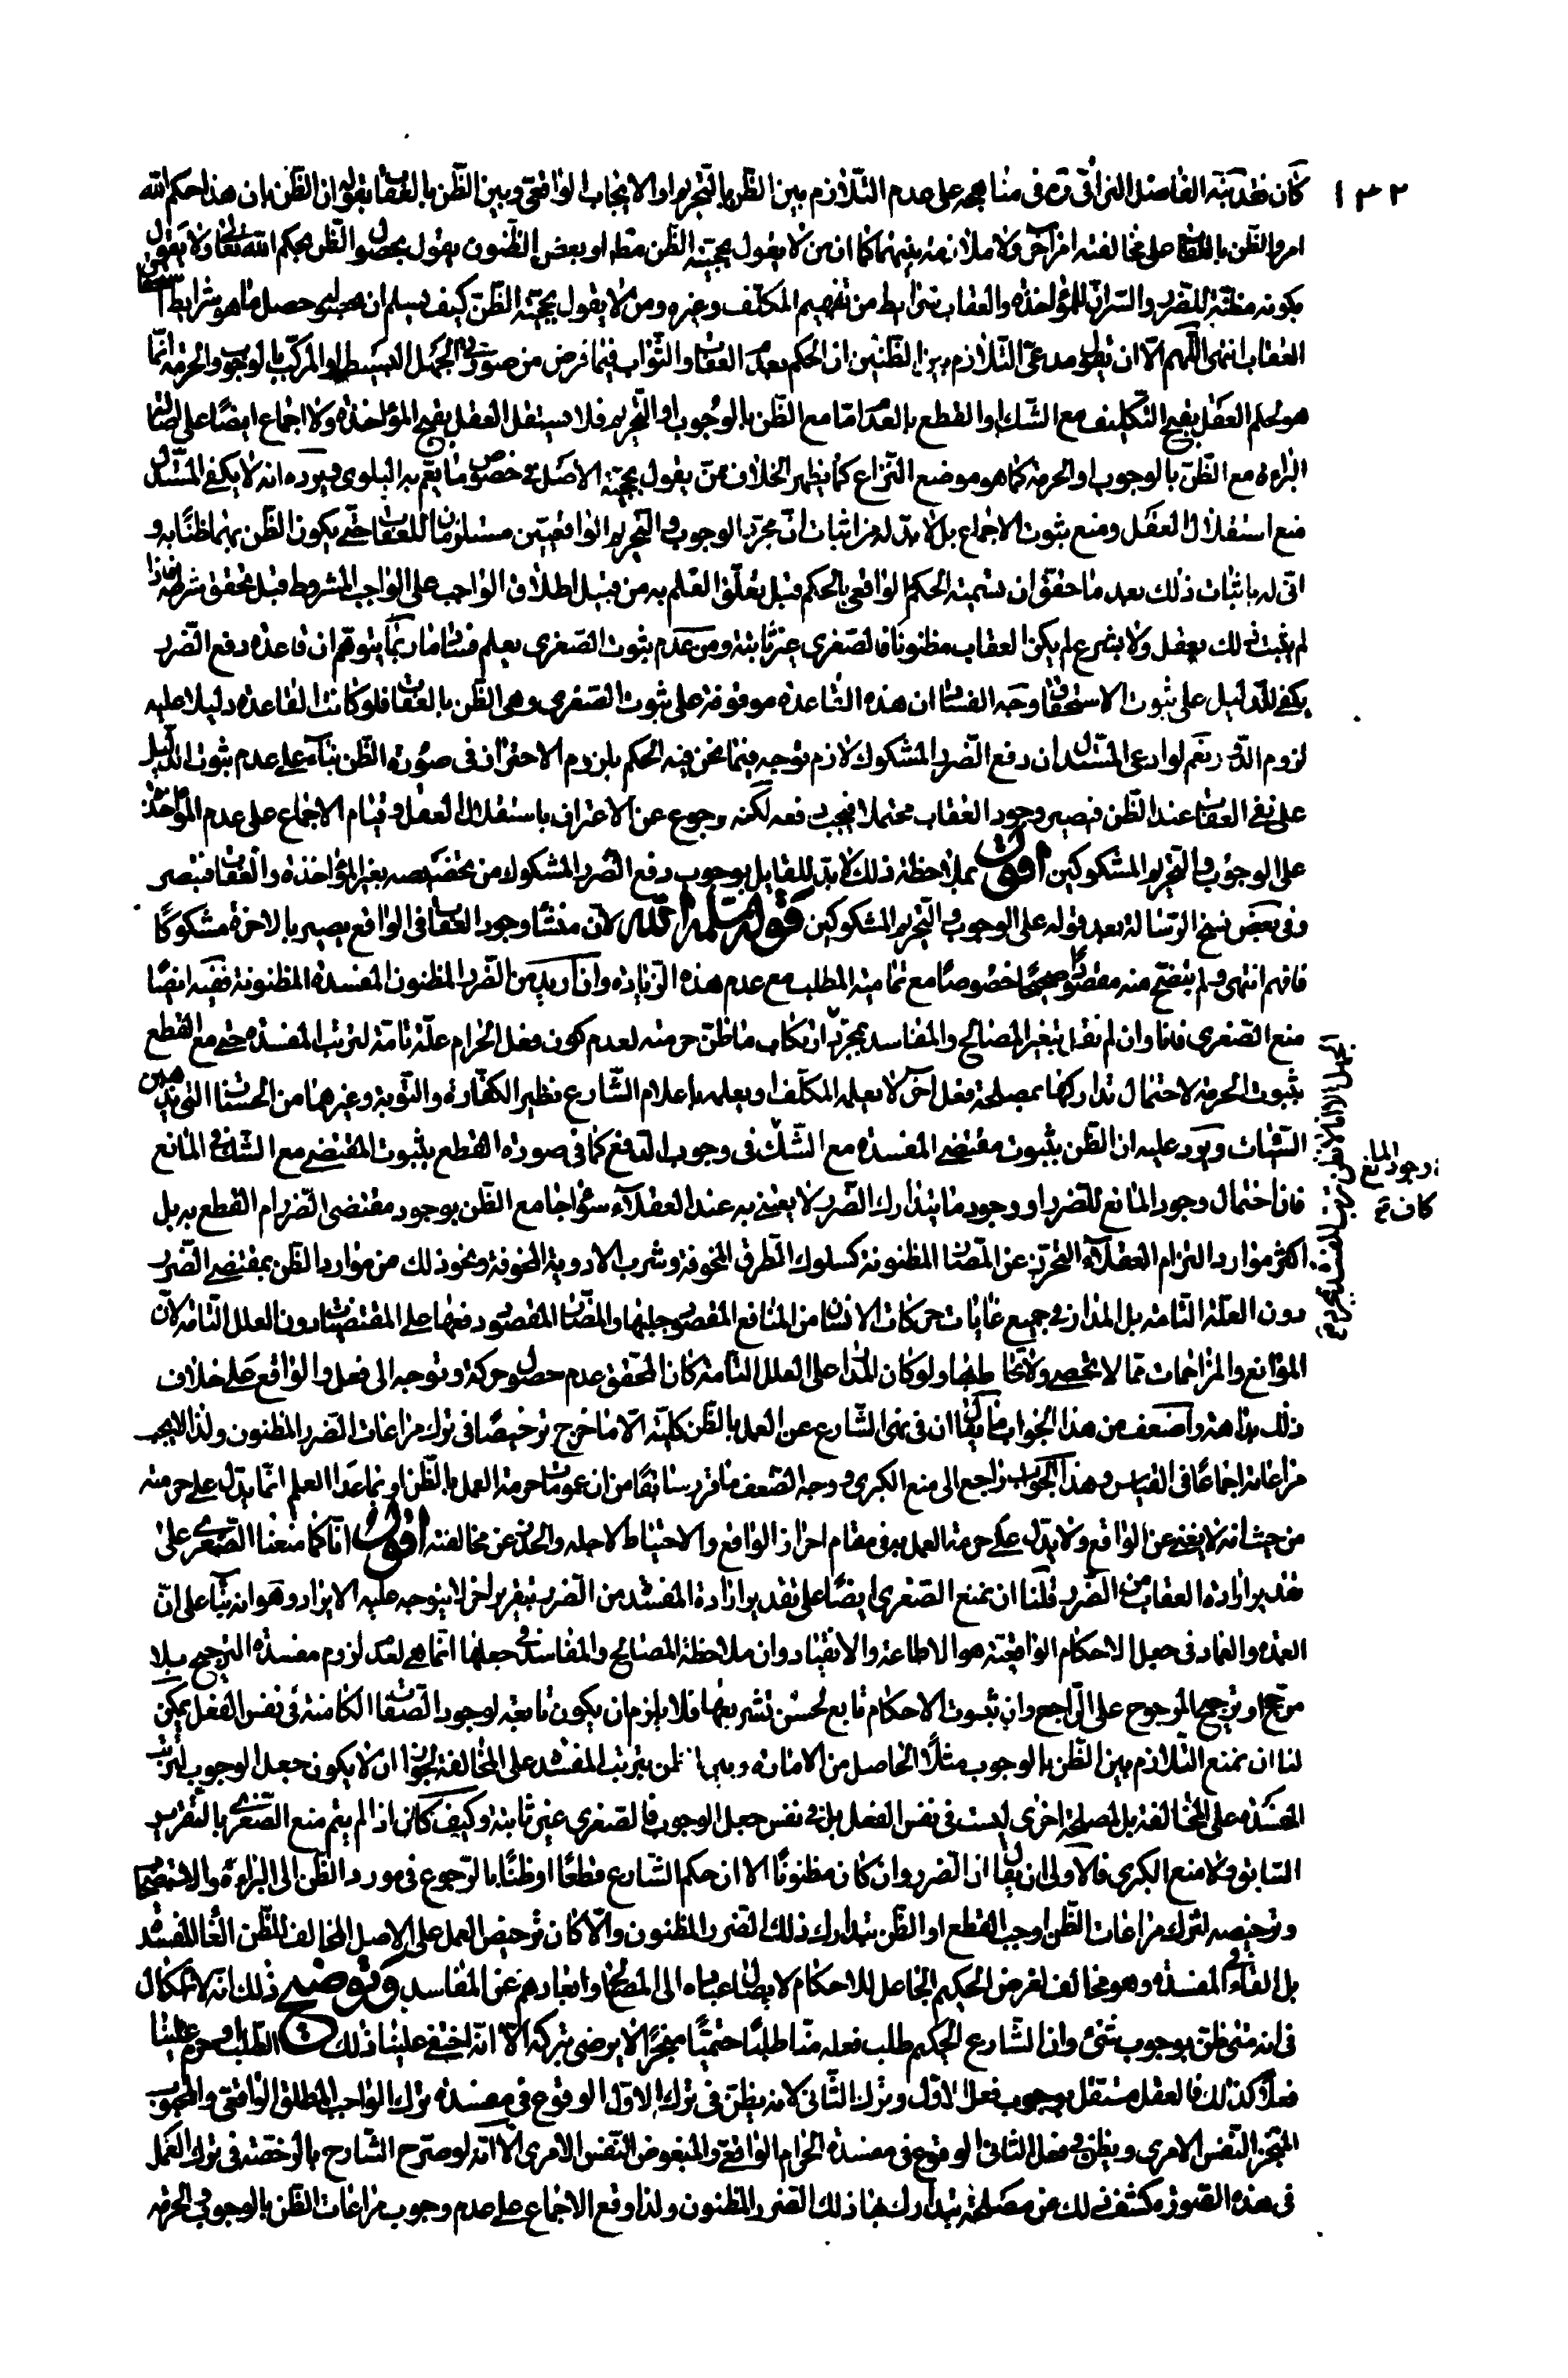 ١٣٢
كان قد نبّه الفاضل النراقى ره فى مناهجه على عدم التلازم بين الظّن بالتحريم او الايجاب الواقعى وبين الظّن بالعقاب بقوله ان الظّن بان هذا حكم الله
امر والظّن بالعقاب على مخالفته امر آخر ولا ملازمة بينهما كما ان من لا يقول بحجيّة الظّن مط او بعض الظنون يقول بحصول الظّن بحكم الله تعالى ولا يقول
بكونه مظنّة للضّرر والسّر انّ للمؤاخذة والعقاب شرايط من تفهيم المكلّف وغيره ومن لا يقول بحجيّة الظّن كيف يسلم ان حصل ما هو شرايط استحقاق
العقاب انتهى اللّهم الّا ان يقول مدعى التّلازم بين الظّنين ان الحكم بعدم العقاب والثّواب فيما فرض من صورتى الجهل البسيط او المركّب بالوجوب والحرمة انّما
هو لحكم العقل بقبح التكليف مع الشّك او القطع بالعدم امّا مع الظّن بالوجوب او التحريم فلا يستقل العقل بقبح المؤاخذة ولا اجماع ايضًا على اصالة
البراءة مع الظّن بالوجوب او الحرمة كما هو موضع النّزاع كما يظهر الخلاف ممّن يقول بحجيّة الاصل فى خصوص ما يعمّ به البلوى ويرده انه لا يكفى المستدل
منع استقلال العقل ومنع ثبوت الاجماع بل لا بدّ له من اثبات انّ مجرّد الوجوب والتحريم الواقعيّين مستلزمان للعقاب حتّى يكون الظّن بهما ظنًّا به و
انّى له باثبات ذلك بعد ما حقّق ان تسمية الحكم الواقعى بالحكم قبل تعلّق العلم به من قبيل اطلاق الواجب على الواجب المشروط قبل تحقق شرطه فاذا
لم يثبت ذلك بعقل ولا بشرع لم يكن العقاب مظنونًا فالصّغرى غير ثابتة ومن عدم ثبوت الصّغرى يعلم فساد ما ربّما يتوهّم ان قاعدة دفع الضّرر
يكفى للدّليل على ثبوت الاستحقاق وجه الفساد ان هذه القاعدة موقوفة على ثبوت الصّغرى وهى الظّن بالعقاب فلو كانت القاعدة دليلا عليه
لزم الدّور نعم لو ادعى المستدل ان دفع الضّرر المشكوك لازم توجه فيما نحن فيه الحكم بلزوم الاحتراز فى صورة الظّن بناء على عدم ثبوت الدّليل
على نفى العقاب عند الظّن فيصير وجود العقاب محتملا فيجب دفعه لكنه رجوع عن الاعتراف باستقلال العقل وقيام الاجماع على عدم المؤاخذة
على الوجوب والتحريم المشكوكين اقول بملاحظة ذلك لا بدّ للقايل بوجوب دفع الضّرر المشكوك من تخصيصه بغير المؤاخذة والعقاب فتبصر
وفى بعض نسخ الرّسالة بعد قوله على الوجوب والتحريم المشكوكين قوله سلّمه الله لان منشأ وجود العقاب فى الواقع يصير بالاخرة مشكوكًا
فافهم انتهى ولم يتضح منه مقصودًا صحيحًا خصوصًا مع تمامية المطلب مع عدم هذه الزّيادة وان اريد من الضّرر المظنون المفسدة المظنونة ففيه ايضًا
منع الصّغرى فانا وان لم نقل بتغير المصالح والمفاسد بمجرّد ارتكاب ما ظنّ حرمته لعدم كون فعل الحرام علّة تامّة لترتب المفسدة حتى مع القطع
بثبوت الحرمة لاحتمال تداركها بمصلحة فعل آخر لا يعلمه المكلّف او يعلمه باعلام الشّارع نظير الكفّارة والتّوبة وغيرهما من الحسنات التى يذهبن
السّيّئات ويرد عليه ان الظّن بثبوت مقتضى المفسدة مع الشّك فى وجود المانع كاف فى وجوب الدّفع كما فى صورة القطع بثبوت المقتضى مع الشّك فى المانع
فان احتمال وجود المانع للضّرر او وجود ما يتدارك الضّرر لا يعتنى به عند العقلاء سواء جامع الظّن بوجود مقتضى الضّرر ام القطع به بل
اكثر موارد التزام العقلاء التحرّز عن المضارّ المظنونة كسلوك الطّرق المخوفة وشرب الادوية المخوفة ونحو ذلك من موارد الظّن بمقتضى الضّرر
دون العلّة التّامة بل المدار فى جميع غايات حركات الانسان من المنافع المقصود جلبها والمضارّ المقصود دفعها على المقتضيات دون العلل التّامة لان
الموانع والمزاحمات ممّا لا تحصى ولا يحاط بها ولو كان المدار على العلل التّامة كان المحقق عدم حصول حركة وتوجه الى فعل والواقع على خلاف
ذلك بداهة واضعف من هذا الجواب ما يقال ان فى نهى الشّارع عن العمل بالظّن كليّة الّا ما خرج ترخيصًا فى ترك مراعات الضّرر المظنون ولذا لا يجب
مراعاته اجماعًا فى القياس وهذا الجواب راجع الى منع الكبرى ووجه الضّعف ما قرر سابقًا من ان عمومات حرمة العمل بالظّن او بما عدا العلم انّما يدل على حرمته
من حيث انه لا يغنى عن الواقع ولا يدل على حرمة العمل به فى مقام احراز الواقع والاحتياط لاجله والحذر عن مخالفته اقول انّا كما منعنا الصّغرى على
تقدير ارادة العقاب من الضّرر فلنا ان نمنع الصّغرى ايضًا على تقدير ارادة المفسدة من الضّرر بتقرير اخر لا يتوجه عليه الايراد وهو انه بناء على انّ
العمدة والعماد فى جعل الاحكام الواقعيّة هو الاطاعة والانقياد وان ملاحظة المصالح والمفاسد فى جعلها انّما هى لعدم لزوم مفسدة الترجيح بلا
مرجح او ترجيح المرجوح على الرّاجح وان ثبوت الاحكام تابع لحسن تشريعها فلا يلزم ان يكون تابعة لوجود الصّفات الكامنة فى نفس الفعل يمكن
لنا ان نمنع التّلازم بين الظّن بالوجوب مثلًا الحاصل من الامارة وبين الظن بترتب المفسدة على المخالفة لجواز ان لا يكون جعل الوجوب لترتب
المفسدة على المخالفة بل لمصلحة اخرى ليست فى نفس الفعل بل فى نفس جعل الوجوب فالصغرى غير ثابتة وكيف كان اذا لم يتم منع الصّغرى بالتقرير
السّابق ولا منع الكبرى فالاولى ان يقال ان الضّرر وان كان مظنونًا الا ان حكم الشّارع قطعًا او ظنًّا بالرّجوع فى مورد الظّن الى البراءة والاستصحاب
وترخيصه لترك مراعات الظّن اوجب القطع او الظّن بتدارك ذلك الضّرر المظنون والّا كان ترخيص العمل على الاصل المخالف للظّن القاء للمفسدة
بل القاء فى المفسدة وهو مخالف لغرض الحكيم الجاعل للاحكام لايصال عباده الى المصالح وابعادهم عن المفاسد وتوضيح ذلك انه لا اشكال
فى انه متى ظنّ بوجوب شئ وان الشّارع الحكيم طلب فعله منّا طلبًا حتميًّا منجّزًا لا يرضى بتركه الّا انّه اختفى علينا ذلك الطّلب او حرم علينا
فعلًا كذلك فالعقل مستقل بوجوب فعل الاوّل وترك الثّانى لانه يظنّ فى ترك الاوّل الوقوع فى مفسدة ترك الواجب المطلق الواقعى والمحبوب
المنجز النّفس الامرى ويظن فى فعل الثانى الوقوع فى مفسدة الحرام الواقعى والمبغوض النّفس الامرى الّا انّه لو صرّح الشّارح بالرّخصة فى ترك العمل
فى هذه الصّورة كشف ذلك من مصلحة يتدارك بها ذلك الضّرر المظنون ولذا وقع الاجماع على عدم وجوب مراعات الظّن بالوجوب او الحرمة
وجود المانع
كاف